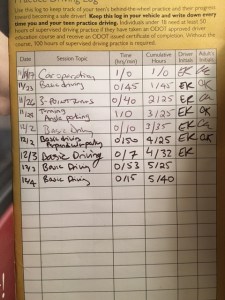 Practice Driving Log
Use this log to keep track of your teen's behind-the-wheel practice and their progress
toward becoming a safe driver! Keep this log in your vehicle and write down every
time you and your teen practice driving. Individuals under 18 need at least 50
hours of supervised driving practice if they have taken an ODOT approved driver
education course and receive an ODOT issued certificate of completion. Without the
course, 100 hours of supervised driving practice is required.
Date Session Topic Time (hrs/min) Cumulative Hours Driver Initials Adult's Initials
Car operating 1/0 1/0 EK
Basic driving 0/45 1/45 EK
11/26 3-Point turns 0/40 2/25 EK
Turning Angle parking 1/0 3/25 EK
12/2 Basic Driving 0/10 3/35 EK
12/2 Basic driving Perpendicular parking 0/50 4/25 EK
12/3 Basic Driving 0/7 4/32 EK
12/3 Basic Driving 0/53 5/25
12/4 Basic Driving 0/15 5/40